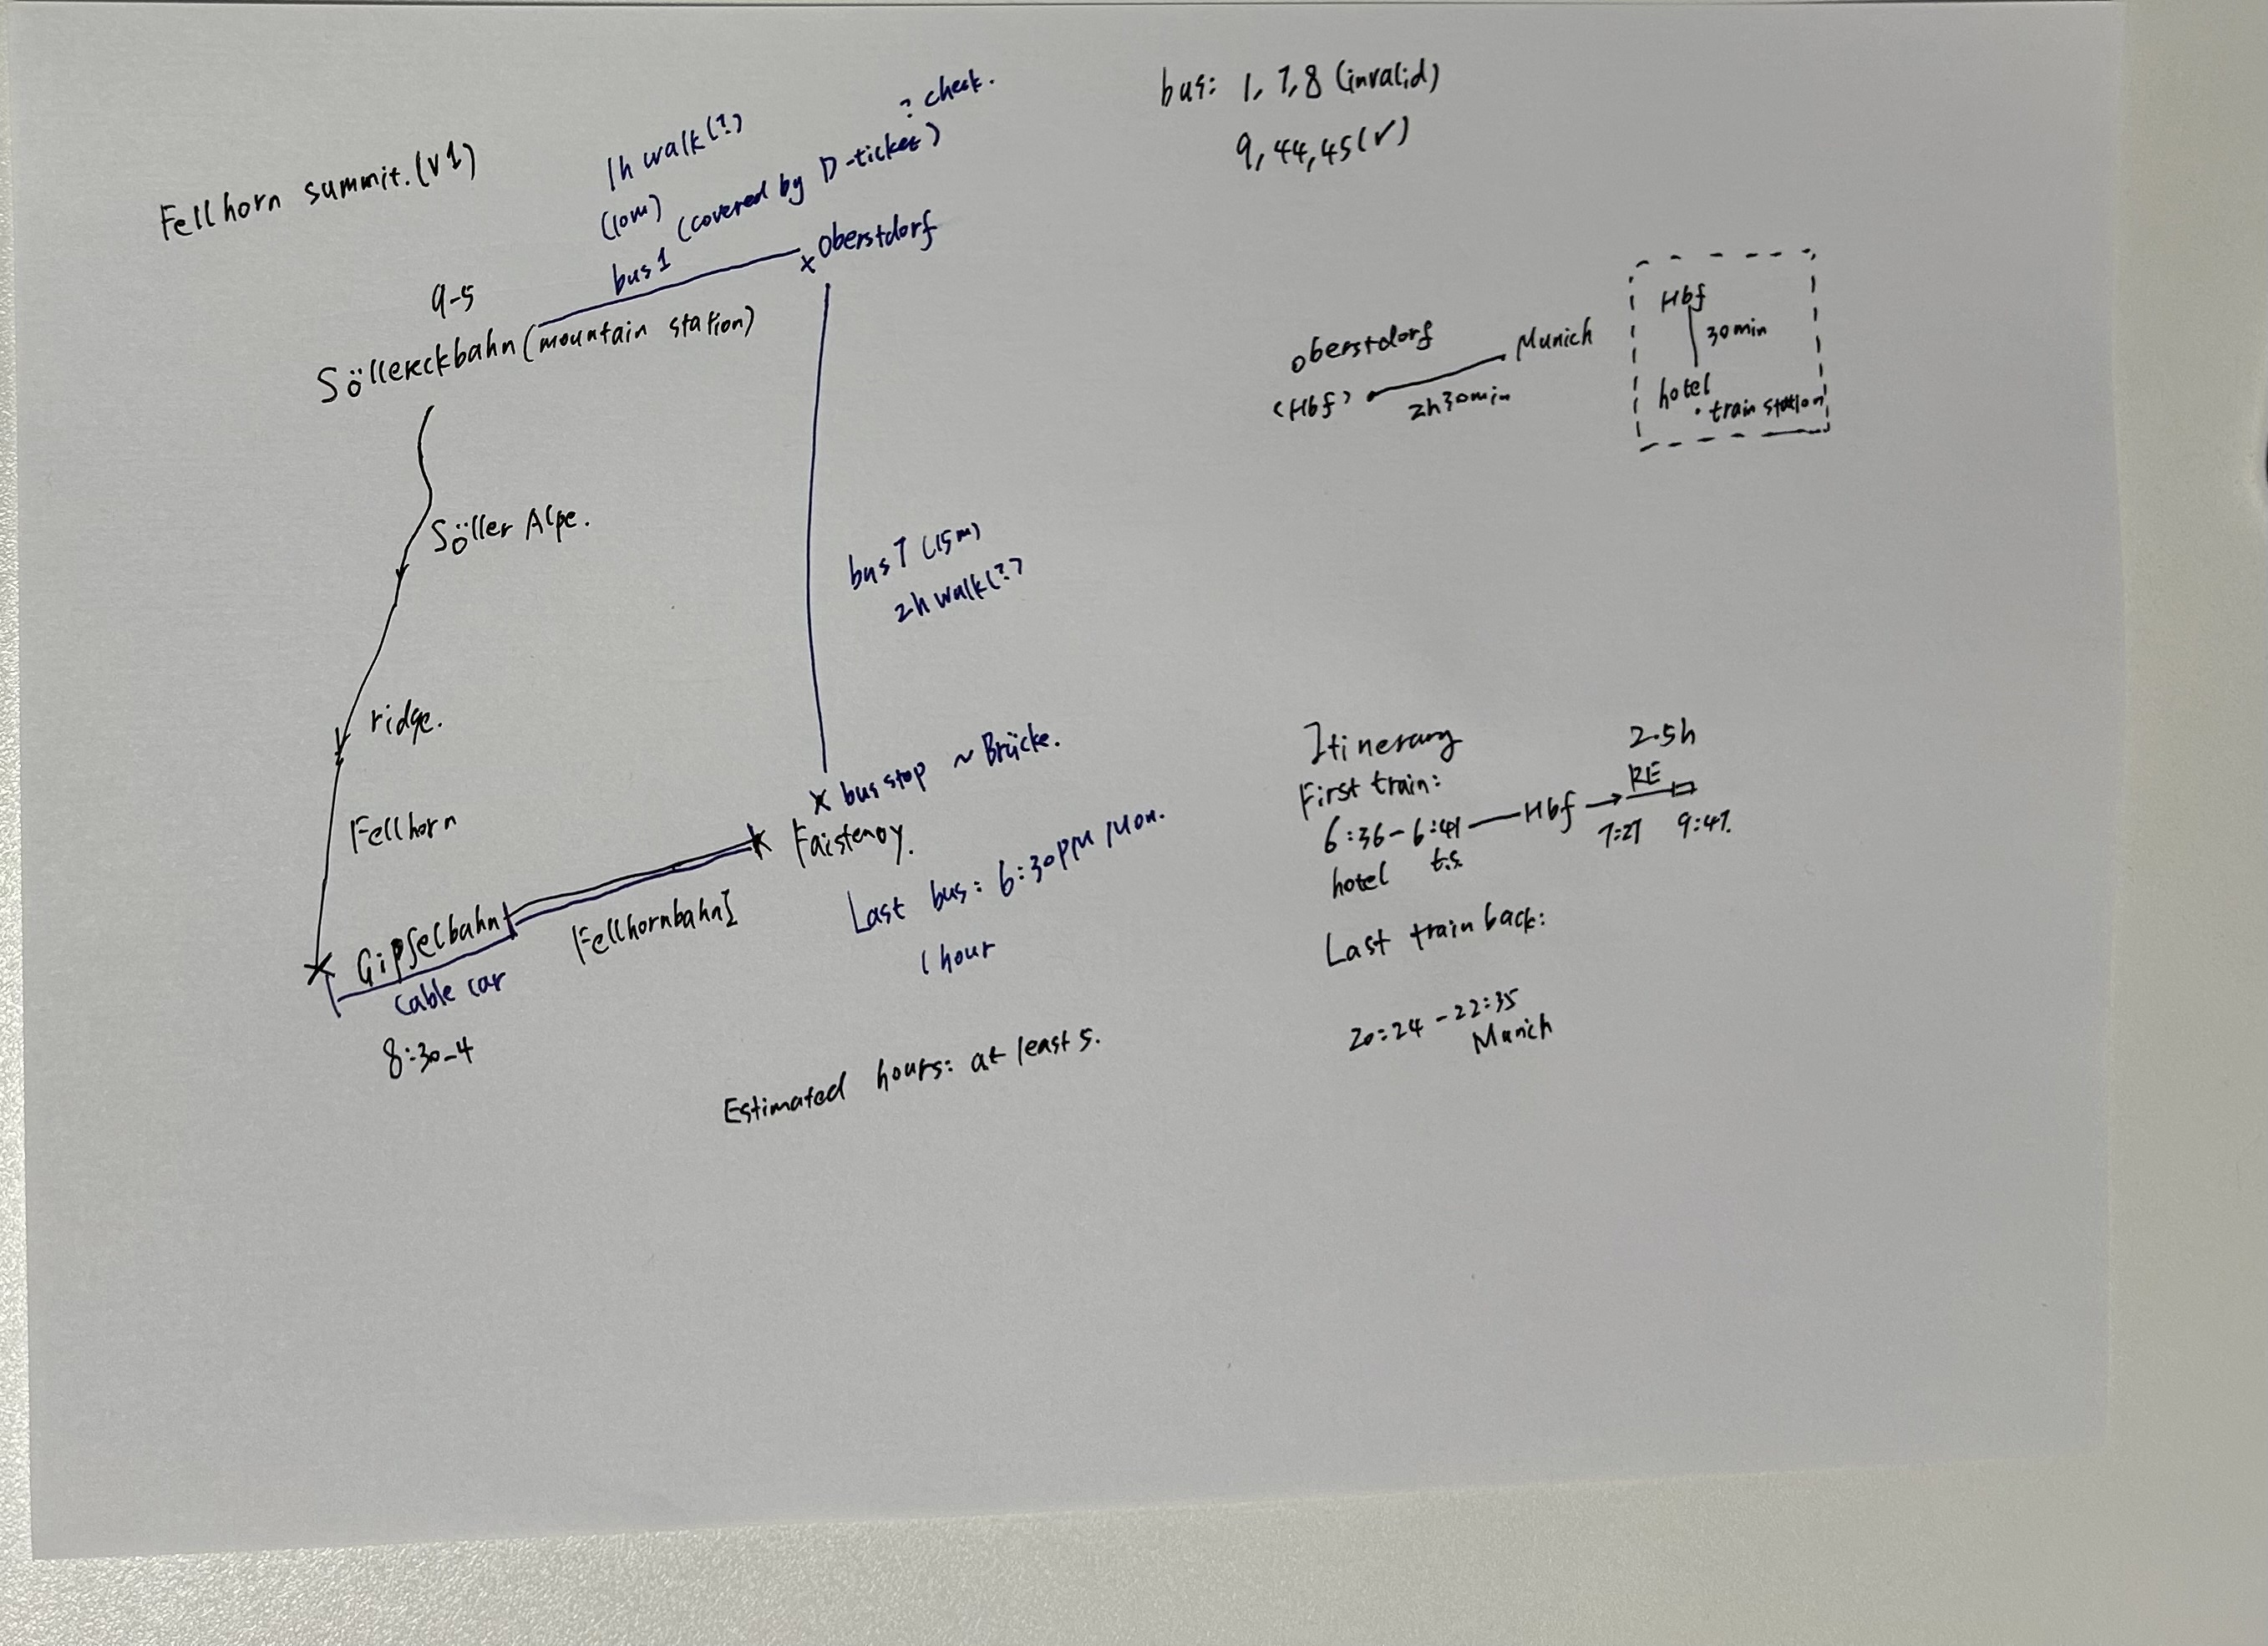 Fellhorn summit. (v1)
1h walk(?)
(10m)
bus1 (covered by D-ticket)
? check.
Oberstdorf
9-5
Söllereckbahn (mountain station)
Söller Alpe.
ridge.
Fellhorn
Gipfelbahn
cable car
8:30-4
Fellhornbahn I
bus 7 (15m)
2h walk(?)
bus stop ~ Brücke.
Faistenoy.
Last bus: 6:30PM Mon.
1 hour
Estimated hours: at least 5.
bus: 1, 7, 8 (invalid)
9, 44, 45(✓)
Oberstdorf
(Hbf)
2h30min
Munich
Hbf
30min
hotel
train station
Itinerary
First train:
6:36-6:41
hotel t.s.
Hbf
2.5h
RE
7:27 9:47.
Last train back:
20:24 - 22:35
Munich